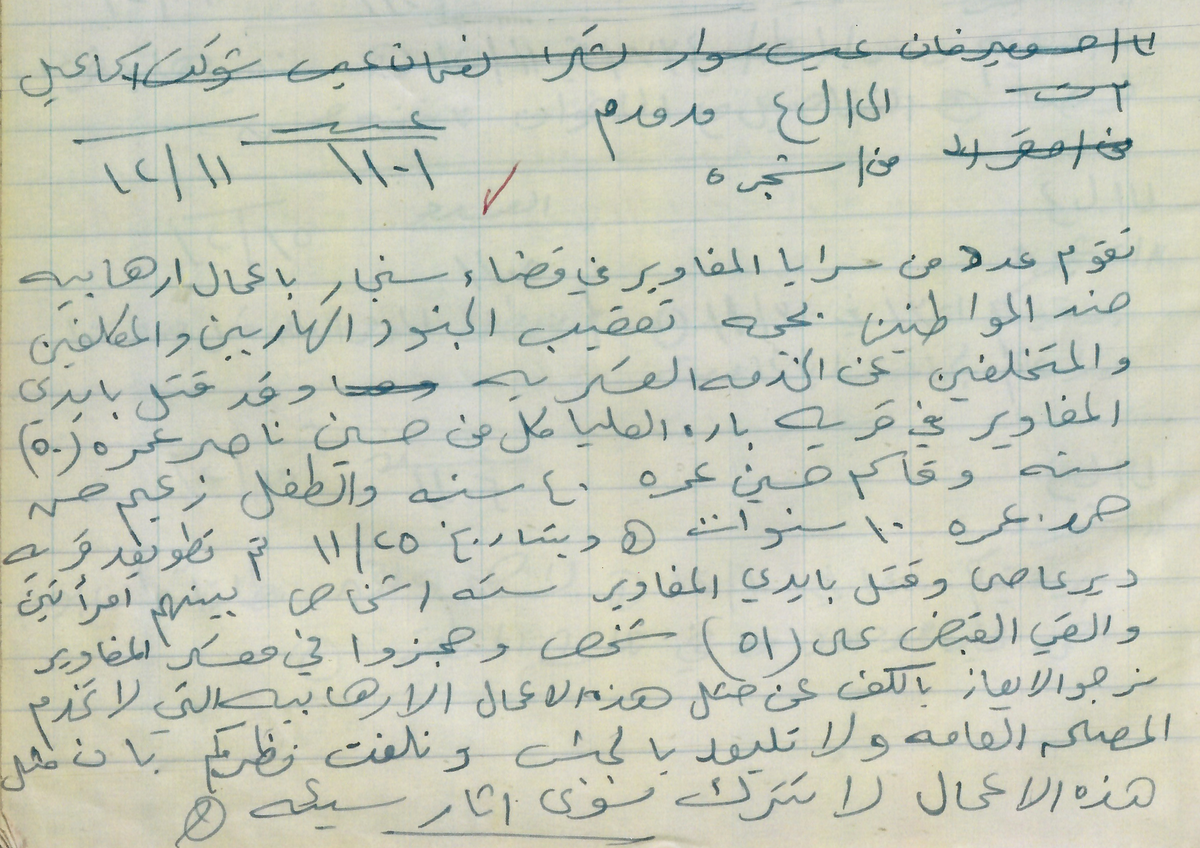 الى / ل ع
من / شجره
١١٠١ ١٢/١١
تقوم عدد من سرايا المغاوير في قضاء سنجار باعمال ارهابيه
ضد المواطنين بحجه تعقيب الجنود الهاربين والمكلفين
والمتخلفين عن الخدمه العسكريه وقد قتل بايدي
المغاوير في قريه باره العليا كل من حسين ناصر عمره (٥٠)
سنه وقاسم حسين عمره ٤٠ سنه والطفل زعيم
حمد عمره ١٠ سنوات (٥) وبتاريخ ١١/٢٥ تم تطويق قريه
ديرعاصي وقتل بايدي المغاوير سته اشخاص بينهم امرأتين
والقي القبض على (٥١) شخص وحجزوا في معسكر المغاوير
نرجو الايعاز بالكف عن مثل هذه الاعمال الارهابيه التي لا تخدم
المصلحه العامه ولا تليق بالجيش ونلفت نظركم بان مثل
هذه الاعمال لا تترك سوى اثار سيئه (٥)